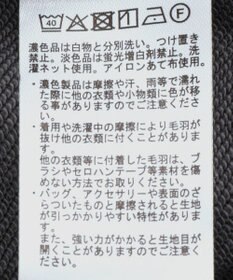 40 F
濃色品は白物と分別洗い。つけ置き
禁止。淡色品は蛍光増白剤禁止。洗
濯ネット使用。アイロンあて布使用。
・濃色製品は摩擦や汗、雨等で濡れ
た際に他の衣類や小物類に色が移
る事がありますのでご注意くださ
い。
・着用や洗濯中の摩擦により毛羽が
抜けて他の衣類に付くことがありま
す。
他の衣類等に付着した毛羽は、ブ
ラシやセロハンテープ等素材を傷
めない方法でお取りください。
・バッグ、アクセサリーや表面のざ
らついたものと摩擦されると生地
が引っかかりやすい特性がありま
す。
また、強い力がかかると生地目が
開くことがありますのでご注意くだ
さい。